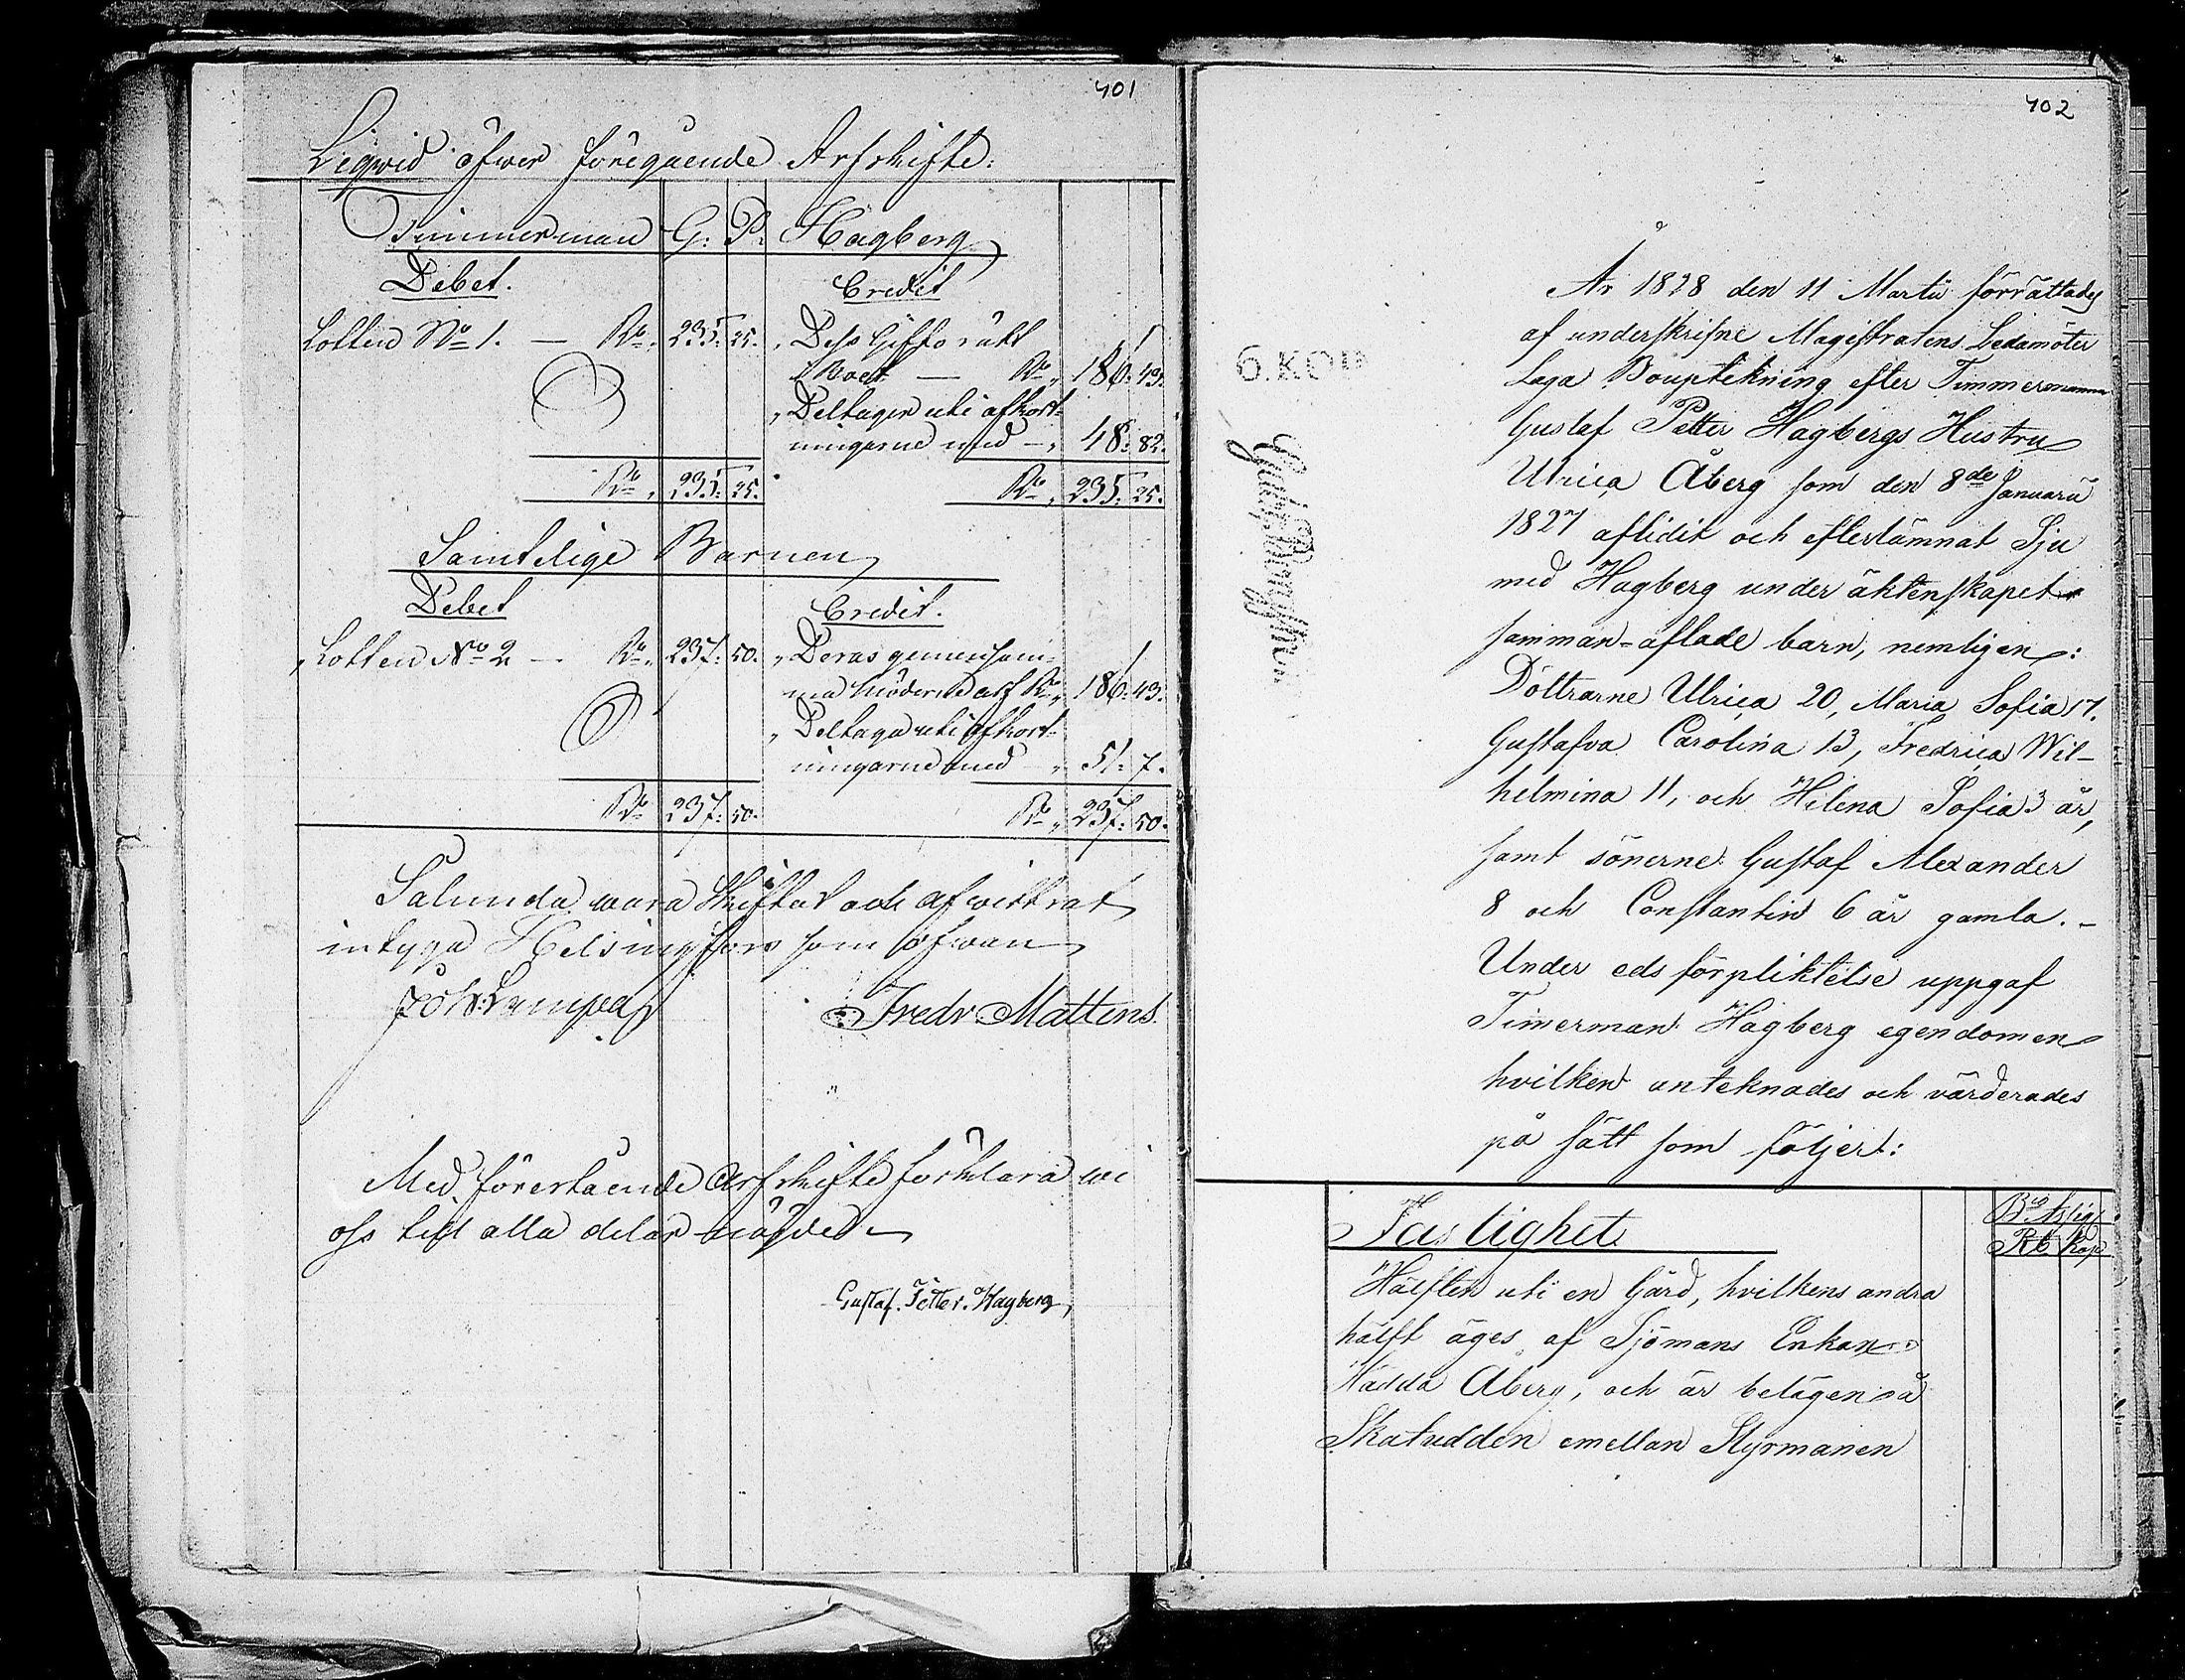 401
Liqwid öfwer föregående Arfskifte:
Timmerman G: P: Hagberg
Debet.
Lotten No 1. — Ro. 235. 25.
Ro. 235. 25.
Credit
Dess Giftorätt
i Boet — Ro. 186. 43.
Deltager uti afkort-
ningarne med — 48. 82.
Ro. 235. 25.
Samtelige Barnen
Debet
Lotten No 2 — Ro. 237. 50.
Ro. 237. 50.
Credit.
Deras gemensam-
ma Möderne arf Ro. 186. 43.
Deltaga uti afkort-
ningarne med 51. 7.
Ro. 237. 50.
Salunda wara skiftat och afwittrat
intyga Helsingfors som ofwan
Fredr Mattens
Med förestående Arfskifte förklara wi
oss till alla delar nöjde
Gustaf. Petter. Hagberg,
402
6. KOP
År 1828 den 11 Martii förrättades
af underskrifne Magistratens Ledamöter
Laga Bouptekning efter Timmermannen
Gustaf Petter Hagbergs Hustru
Ulrica Åberg som den 8de Januarii
1827 aflidit och efterlämnat Sju
med Hagberg under äktenskapet
samman-aflade barn, nemligen:
Döttrarne Ulrica 20, Maria Sofia 17.
Gustafva Carolina 13, Fredrica Wil-
helmina 11, och Helena Sofia 3 år,
samt sönerne Gustaf Alexander
8 och Constantin 6 år gamla. -
Under eds förpliktelse uppgaf
Timerman Hagberg egendomen
hvilken anteknades och värderades
på sätt som följer:
Fastighet
Bo Assign
Rb Kop
Hälften uti en Gård, hvilkens andra
hälft äges af Sjömans Enkan
Hädda Åberg, och är belägen på
Skatudden emellan Styrmanen